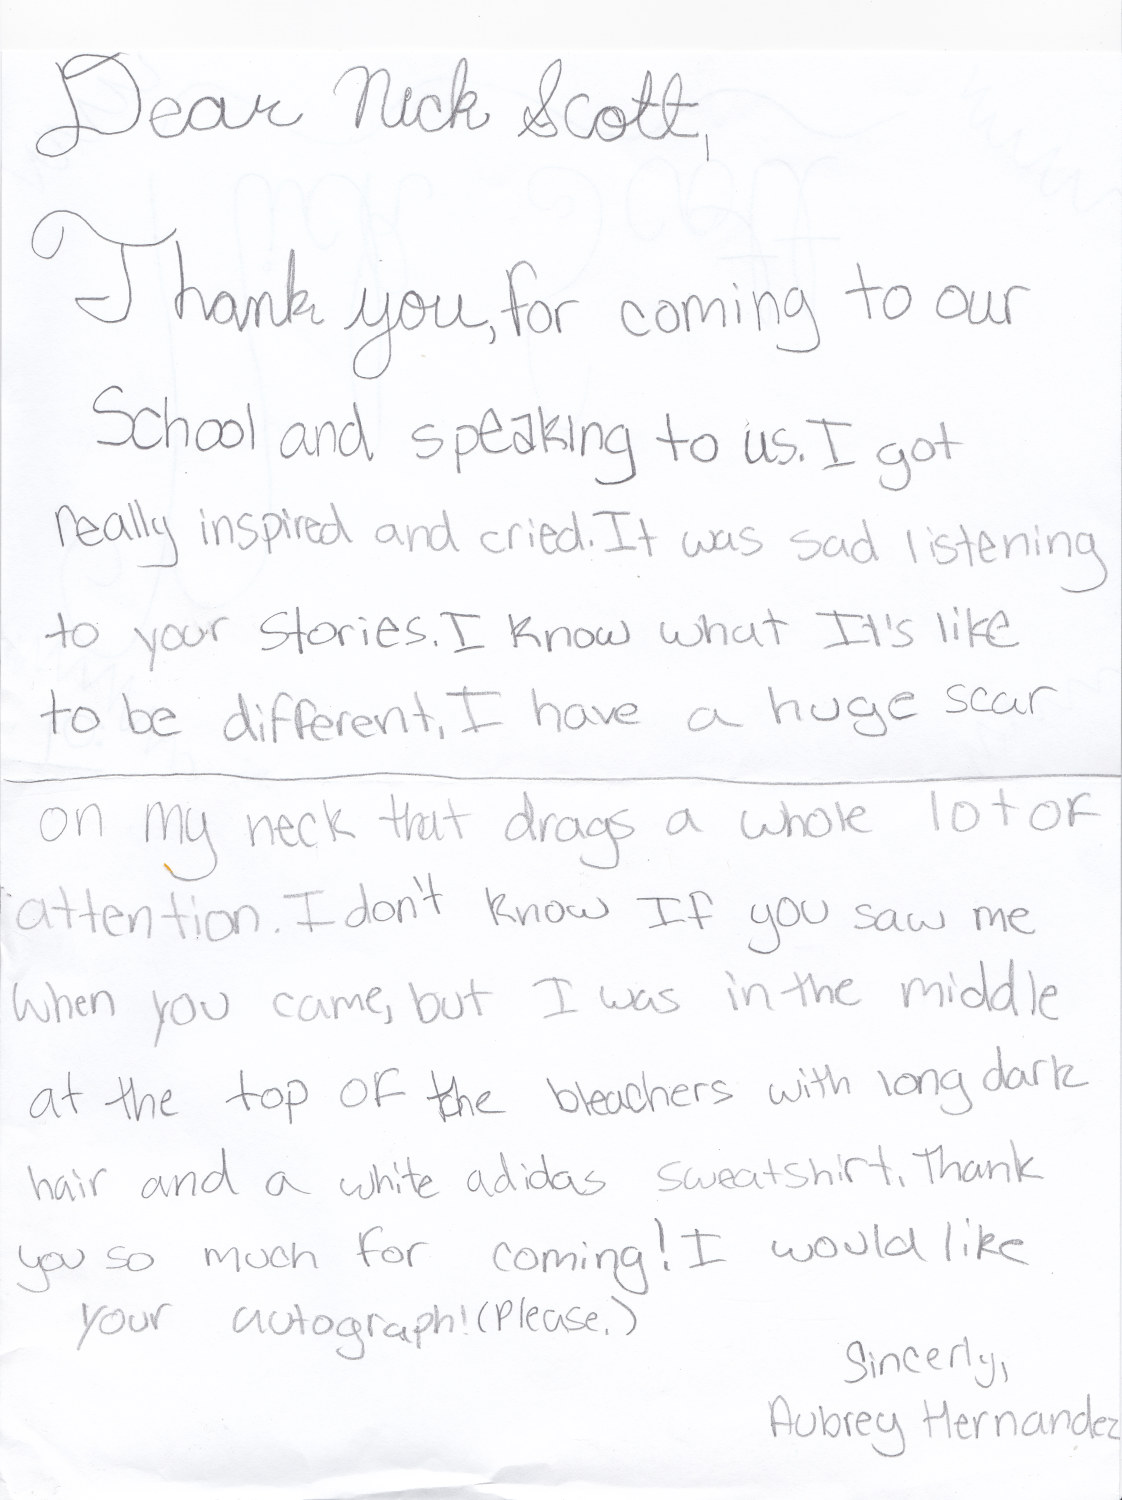 Dear Nick Scott,
Thank you, for coming to our
School and speaking to us. I got
really inspired and cried. It was sad listening
to your stories. I know what It's like
to be different, I have a huge scar
on my neck that drags a whole lot of
attention. I don't know If you saw me
when you came, but I was in the middle
at the top of the bleachers with long dark
hair and a white adidas sweatshirt. Thank
you so much for coming! I would like
your autograph! (Please.)
Sincerly,
Aubrey Hernandez